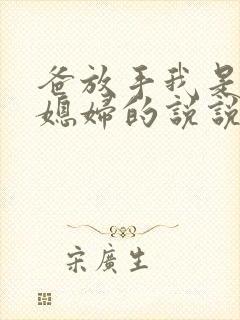 爸放手我是
媳婦的説説
宋廣生